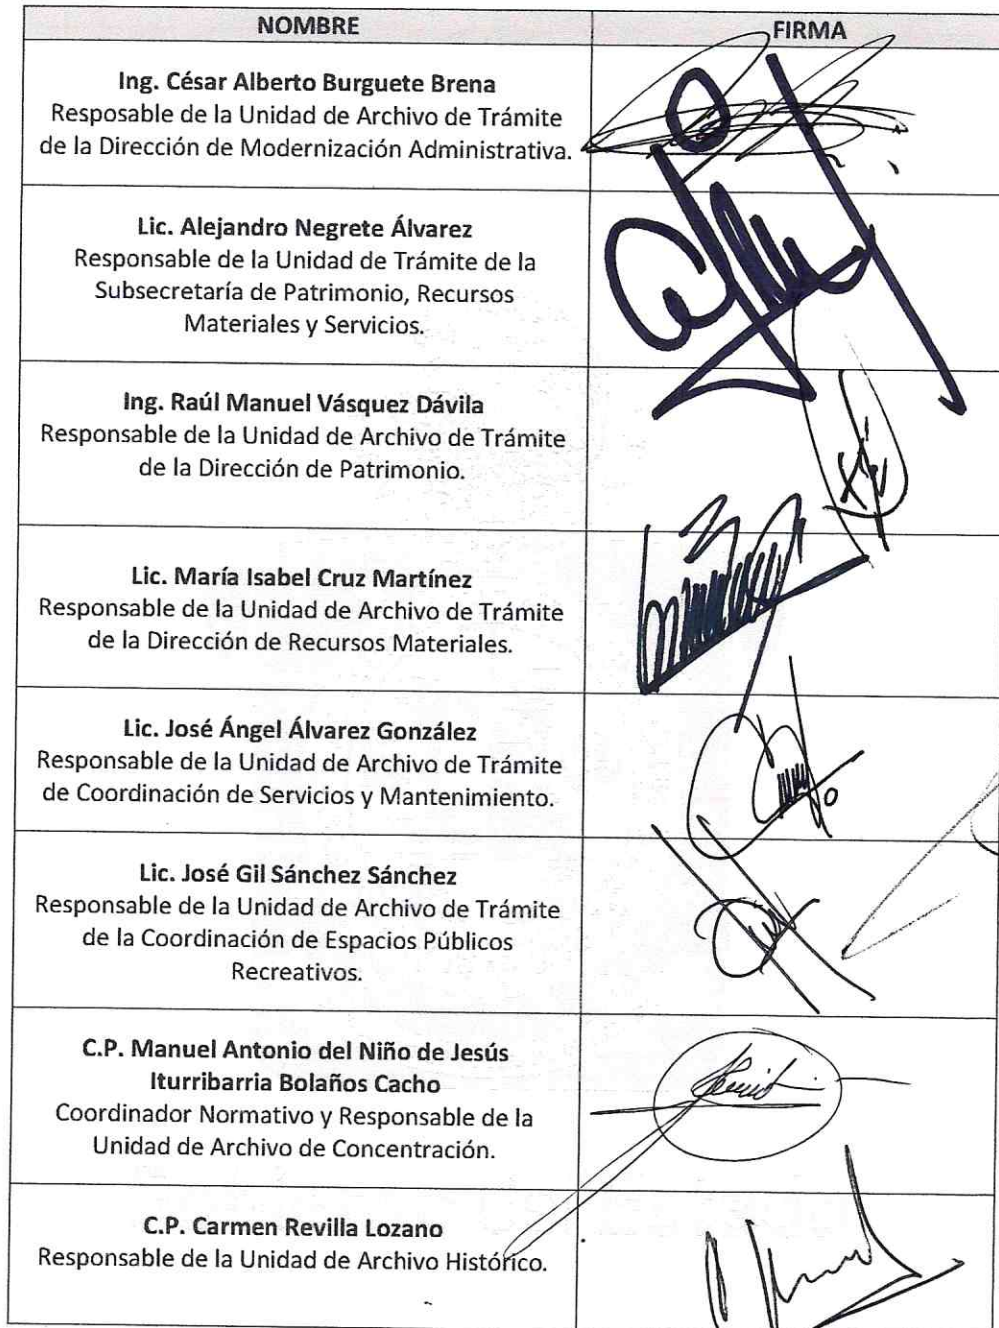 NOMBRE FIRMA
Ing. César Alberto Burguete Brena
Resposable de la Unidad de Archivo de Trámite
de la Dirección de Modernización Administrativa.
Lic. Alejandro Negrete Álvarez
Responsable de la Unidad de Trámite de la
Subsecretaría de Patrimonio, Recursos
Materiales y Servicios.
Ing. Raúl Manuel Vásquez Dávila
Responsable de la Unidad de Archivo de Trámite
de la Dirección de Patrimonio.
Lic. María Isabel Cruz Martínez
Responsable de la Unidad de Archivo de Trámite
de la Dirección de Recursos Materiales.
Lic. José Ángel Álvarez González
Responsable de la Unidad de Archivo de Trámite
de Coordinación de Servicios y Mantenimiento.
Lic. José Gil Sánchez Sánchez
Responsable de la Unidad de Archivo de Trámite
de la Coordinación de Espacios Públicos
Recreativos.
C.P. Manuel Antonio del Niño de Jesús
Iturribarria Bolaños Cacho
Coordinador Normativo y Responsable de la
Unidad de Archivo de Concentración.
C.P. Carmen Revilla Lozano
Responsable de la Unidad de Archivo Histórico.